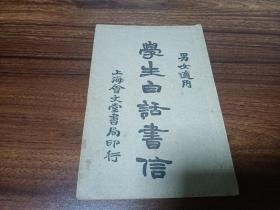 男女適用
學生白話書信
上海會文堂書局印行